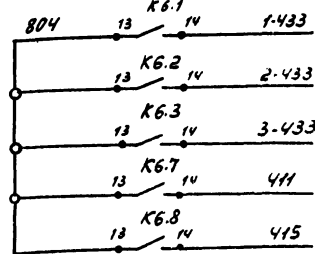 K6.1
804 13 14 1-433
K6.2
13 14 2-433
K6.3
13 14 3-433
K6.7
13 14 411
K6.8
13 14 415